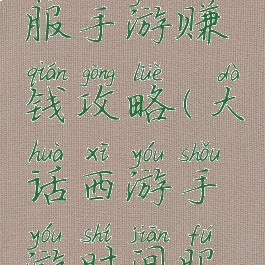 服手游赚
qián gōng lüè dà
钱攻略(大
huà xī yóu shǒu
话西游手
yóu shí jiān fú
游时间服